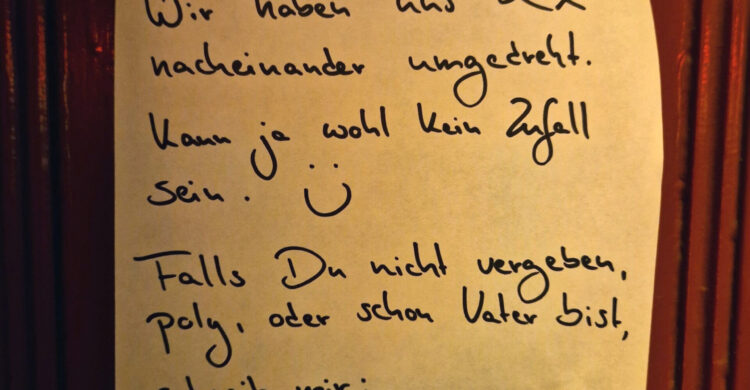 Wir haben uns 2x
nacheinander umgedreht.
Kann ja wohl kein Zufall
sein. Ü
Falls Du nicht vergeben,
poly, oder schon Vater bist,
schreib mir: